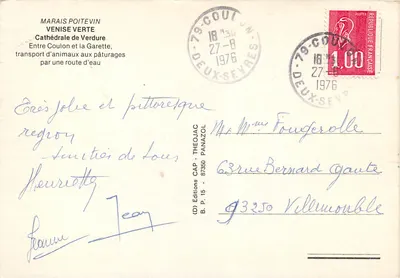 MARAIS POITEVIN
VENISE VERTE
Cathédrale de Verdure
Entre Coulon et la Garette,
transport d'animaux aux pâturages
par une route d'eau
79-COULON
18H
27-8
1976
DEUX-SEVRES
79-COULON
18H
27-8
1976
DEUX-SEVRES
1,00
REPUBLIQUE FRANÇAISE
Très jolie et pittoresque
region
Amitiés de tous
Henriette
Jeanne Jean
(D) Editions CAP - THEOJAC
B. P. 15 - 87350 PANAZOL
M et Mme Fougerolle
63 rue Bernard Gante
93250 Villemomble